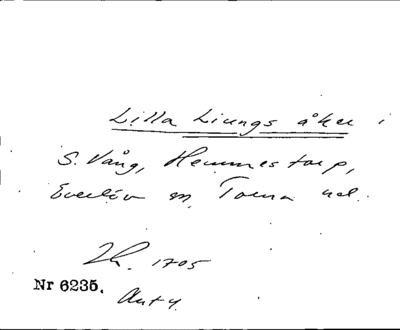 Lilla Liungs åker i
S. Vång, Hemmestorp,
Everlöv sn, Torna hd.
Lh. 1705
Nr 6235.
Avt 4.